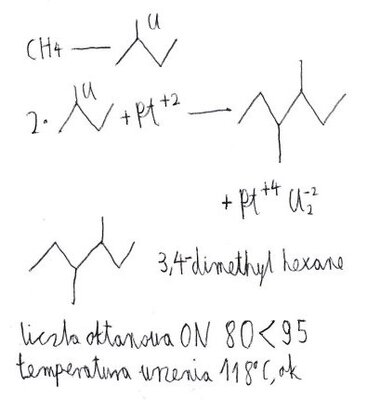 Cl
CH4
Cl
2· + Pt+2
+ Pt+4 Cl2-2
3,4-dimethyl hexane
liczba oktanowa ON 80<95
temperatura wrzenia 118°C, ok